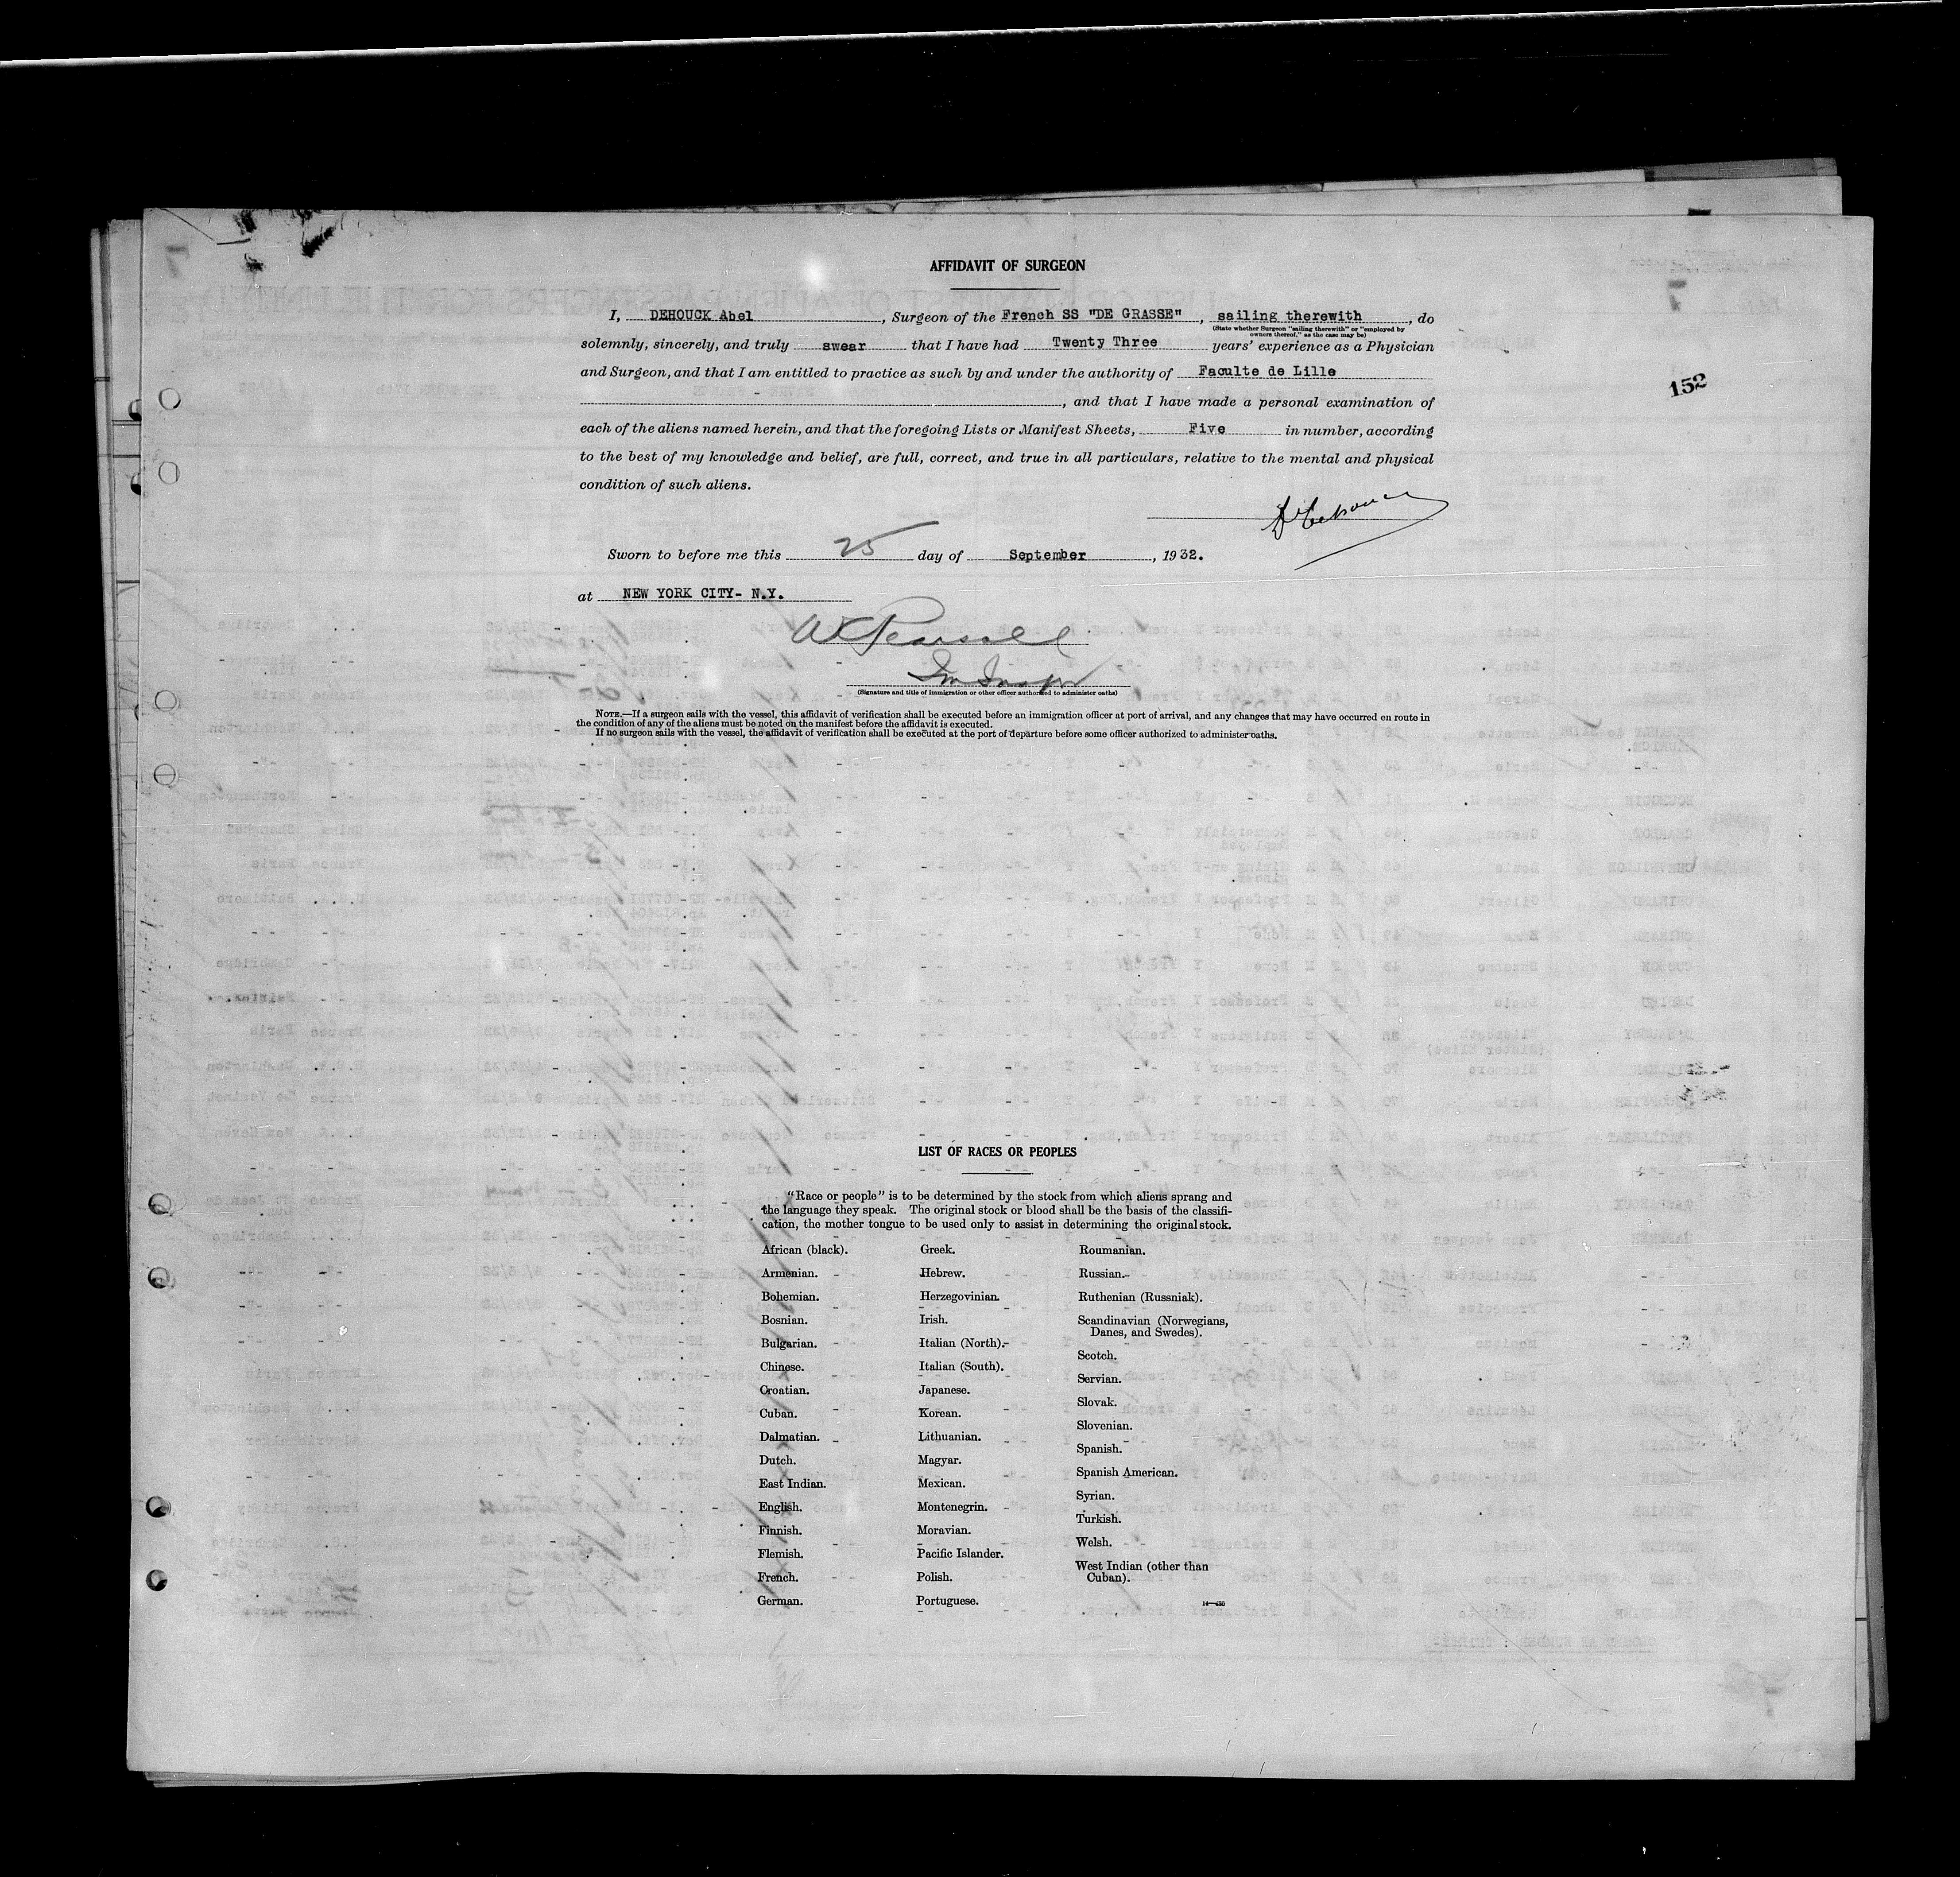 AFFIDAVIT OF SURGEON
I, DEHOUCK Abel, Surgeon of the French SS "DE GRASSE", sailing therewith, do
(State whether Surgeon "sailing therewith" or "employed by
owners thereof," as the case may be)
solemnly, sincerely, and truly swear that I have had Twenty Three years' experience as a Physician
and Surgeon, and that I am entitled to practice as such by and under the authority of Faculte de Lille
152
, and that I have made a personal examination of
each of the aliens named herein, and that the foregoing Lists or Manifest Sheets, Five in number, according
to the best of my knowledge and belief, are full, correct, and true in all particulars, relative to the mental and physical
condition of such aliens.
Sworn to before me this 25 day of September, 1932.
at NEW YORK CITY- N.Y.
(Signature and title of immigration or other officer authorized to administer oaths)
NOTE.—If a surgeon sails with the vessel, this affidavit of verification shall be executed before an immigration officer at port of arrival, and any changes that may have occurred en route in
the condition of any of the aliens must be noted on the manifest before the affidavit is executed.
If no surgeon sails with the vessel, the affidavit of verification shall be executed at the port of departure before some officer authorized to administer oaths.
LIST OF RACES OR PEOPLES
"Race or people" is to be determined by the stock from which aliens sprang and
the language they speak. The original stock or blood shall be the basis of the classifi-
cation, the mother tongue to be used only to assist in determining the original stock.
African (black).
Armenian.
Bohemian.
Bosnian.
Bulgarian.
Chinese.
Croatian.
Cuban.
Dalmatian.
Dutch.
East Indian.
English.
Finnish.
Flemish.
French.
German.
Greek.
Hebrew.
Herzegovinian.
Irish.
Italian (North).
Italian (South).
Japanese.
Korean.
Lithuanian.
Magyar.
Mexican.
Montenegrin.
Moravian.
Pacific Islander.
Polish.
Portuguese.
Roumanian.
Russian.
Ruthenian (Russniak).
Scandinavian (Norwegians,
Danes, and Swedes).
Scotch.
Servian.
Slovak.
Slovenian.
Spanish.
Spanish American.
Syrian.
Turkish.
Welsh.
West Indian (other than
Cuban).